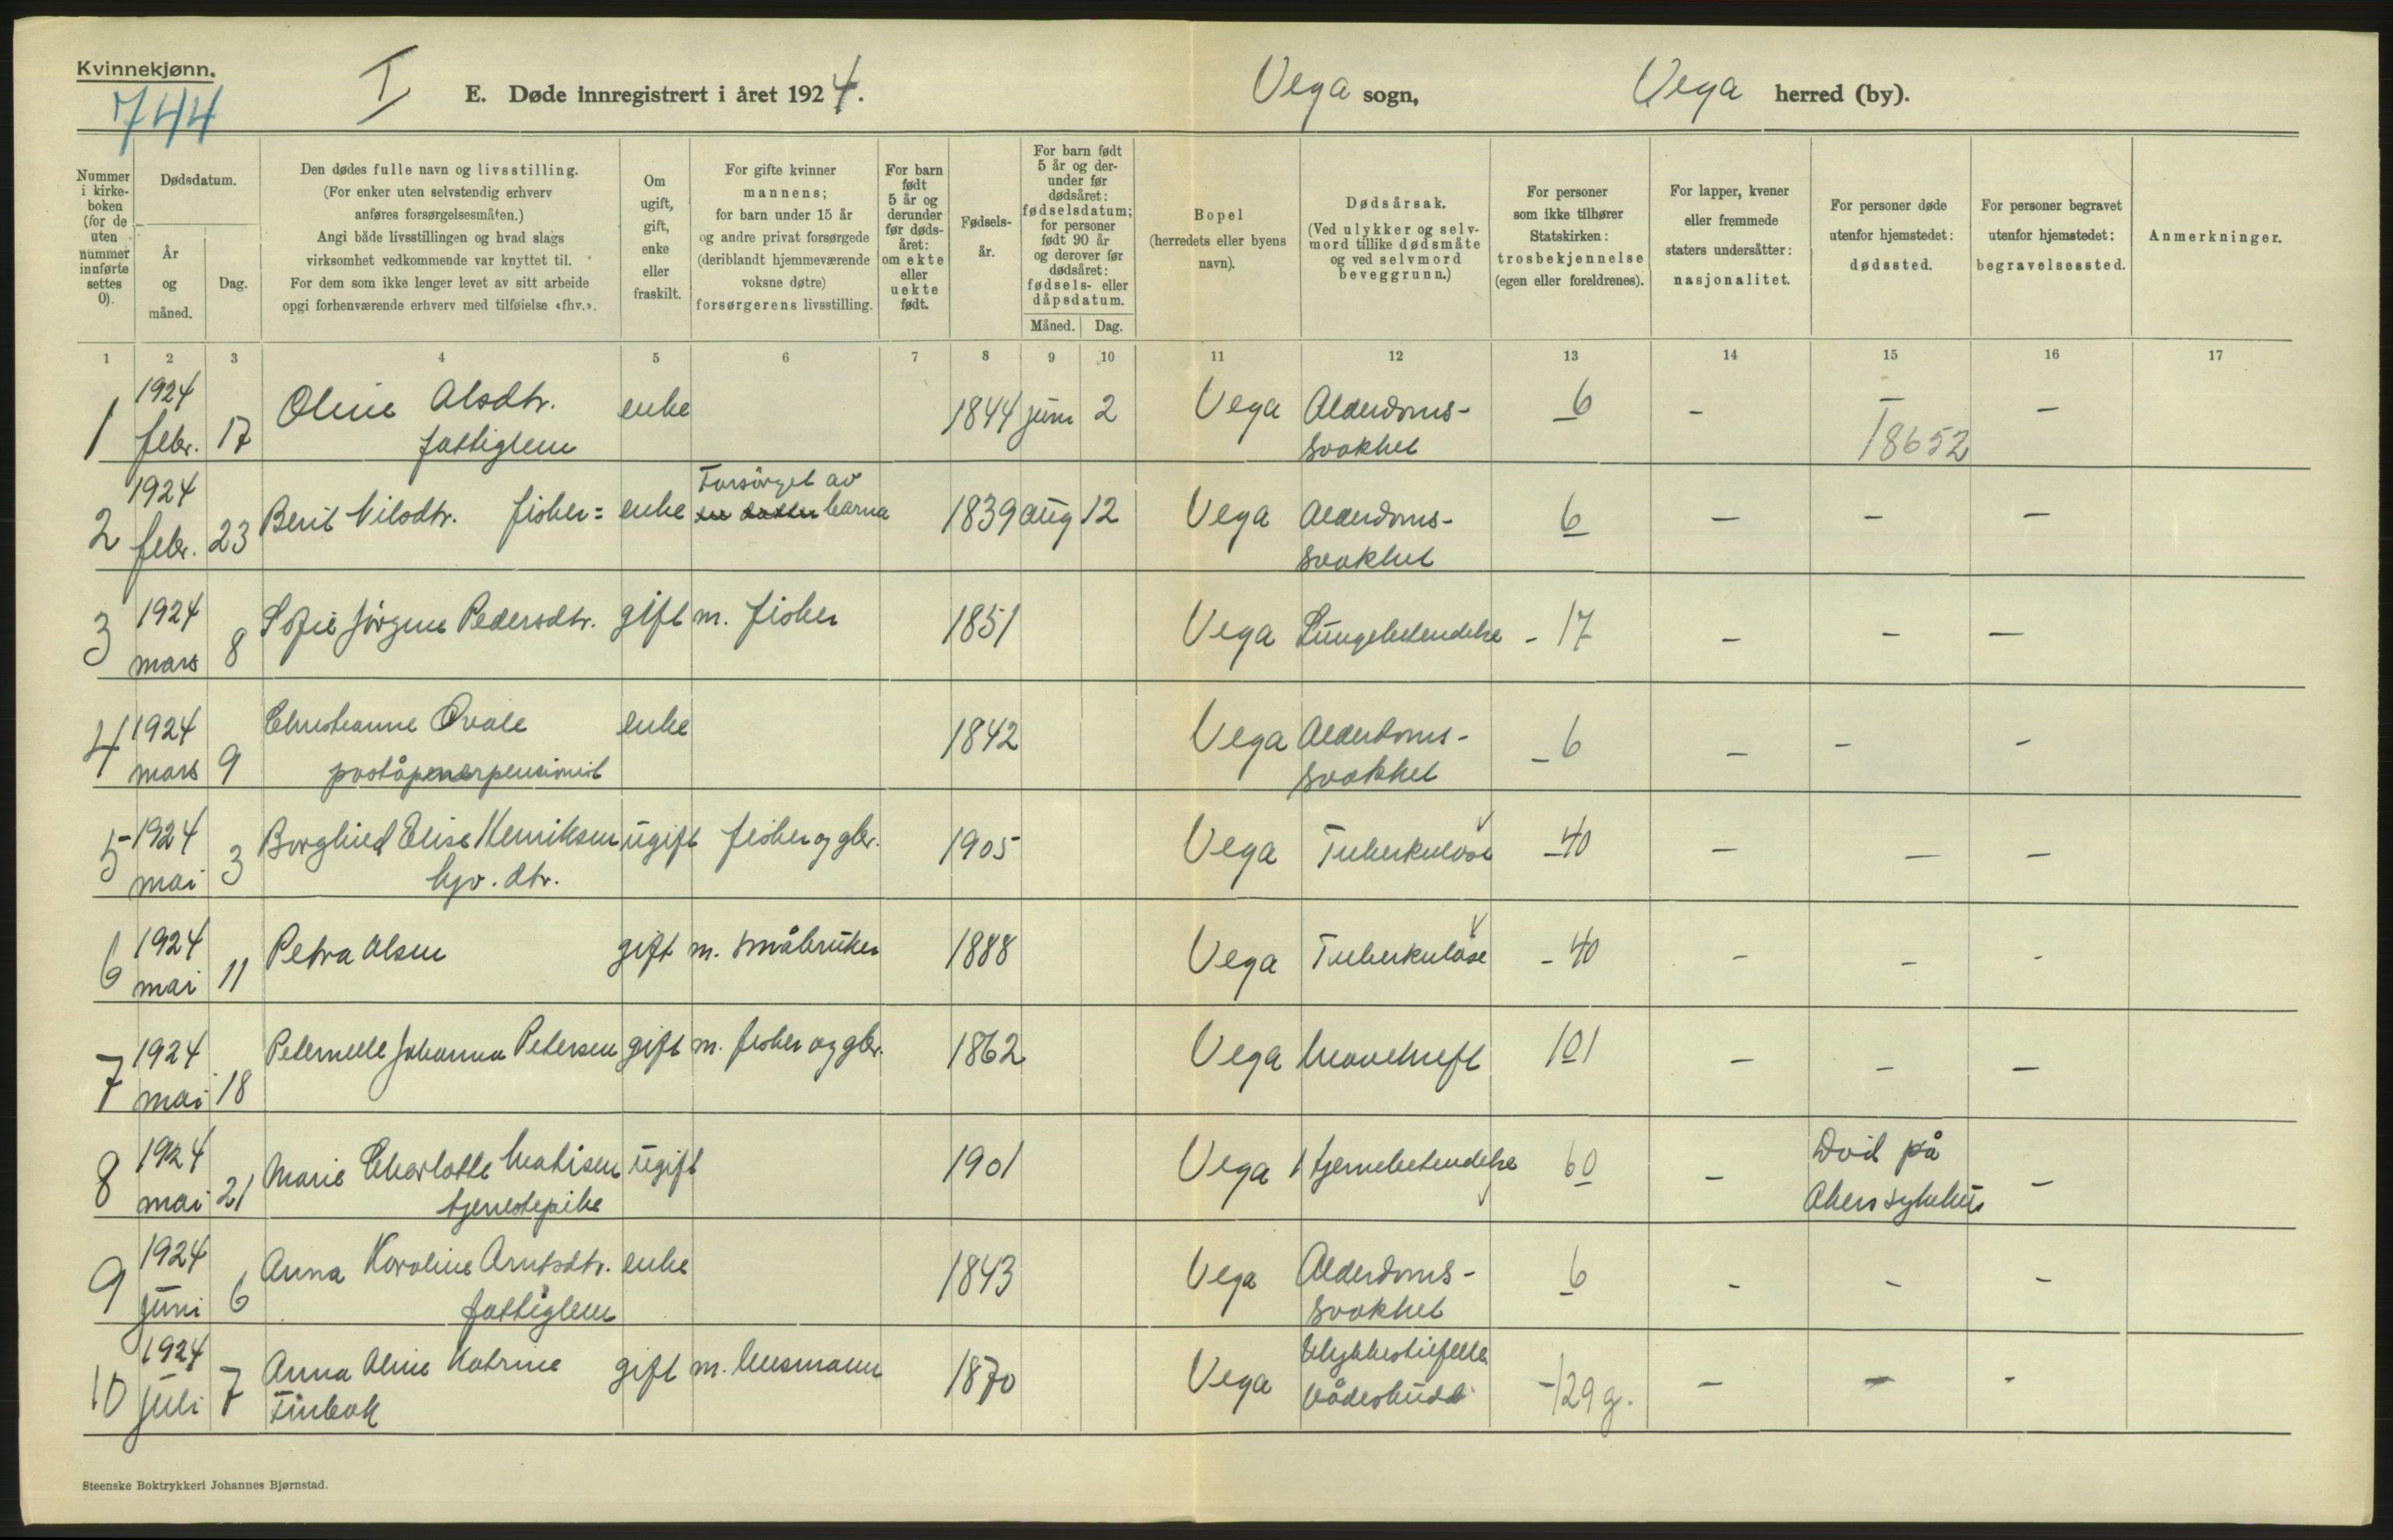 Kvinnekjønn.
744
I
E. Døde innregistrert i året 1924.
Vega sogn,
Vega herred (by).
Nummer i kirkeboken (for de uten nummer innførte settes 0).
Dødsdatum.
År og måned.
Dag.
Den dødes fulle navn og livsstilling.
(For enker uten selvstendig erhverv
anføres forsørgelsesmåten.)
Angi både livsstillingen og hvad slags
virksomhet vedkommende var knyttet til.
For dem som ikke lenger levet av sitt arbeide
opgi forhenværende erhverv med tilføielse «fhv.».
Om ugift, gift, enke eller fraskilt.
For gifte kvinner
mannens;
for barn under 15 år
og andre privat forsørgede
(deriblandt hjemmeværende
voksne døtre)
forsørgerens livsstilling.
For barn født 5 år og derunder før dødsåret: om ekte eller uekte født.
Fødselsår.
For barn født 5 år og derunder før dødsåret: fødselsdatum; for personer født 90 år og derover før dødsåret: fødsels- eller dåpsdatum.
Måned. Dag.
Bopel
(herredets eller byens
navn).
Dødsårsak.
(Ved ulykker og selv-
mord tillike dødsmåte
og ved selvmord
beveggrunn.)
For personer
som ikke tilhører
Statskirken:
trosbekjennelse
(egen eller foreldrenes).
For lapper, kvener
eller fremmede
staters undersåtter:
nasjonalitet.
For personer døde
utenfor hjemstedet:
dødssted.
For personer begravet
utenfor hjemstedet:
begravelsessted.
Anmerkninger.
1 2 3 4 5 6 7 8 9 10 11 12 13 14 15 16 17
1 1924 febr. 17 Oline Olsdtr. fattiglem enke 1844 juni 2 Vega Alderdoms-svakhet - 6 - - 18652 -
2 1924 febr. 23 Berit Nilsdtr. fisker= enke Forsørget av barna 1839 aug 12 Vega Alderdoms-svakhet 6 - - -
3 1924 mars 8 Sofie Jørgine Pedersdtr. gift m. fisker 1851 Vega Lungebetendelse - 17 - - -
4 1924 mars 9 Christianne Qvale poståpnerpensionist enke 1842 Vega Alderdoms-svakhet - 6 - - -
5 1924 mai 3 Borghild Elise Henriksen hjv. dtr. ugift fisker og gbr. 1905 Vega Tuberkuløse - 40 - - -
6 1924 mai 11 Petra Olsen gift m. småbruker 1888 Vega Tuberkuløse - 40 - - -
7 1924 mai 18 Peternelle Johanna Petersen gift m. fisker og gbr. 1862 Vega Mavekreft 101 - - -
8 1924 mai 21 Marie Charlotte Matisen tjenestepike ugift 1901 Vega Hjernebetendelse 60 - Död på Akers sykehus -
9 1924 juni 6 Anna Karoline Arntsdtr. fattiglem enke 1843 Vega Alderdoms-svakhet 6 - - -
10 1924 juli 7 Anna Oline Katrine Finbak gift m. husmann 1870 Vega Ulykkestilfelle Vådeskudd - 129 g. - - -
Steenske Boktrykkeri Johannes Bjørnstad.